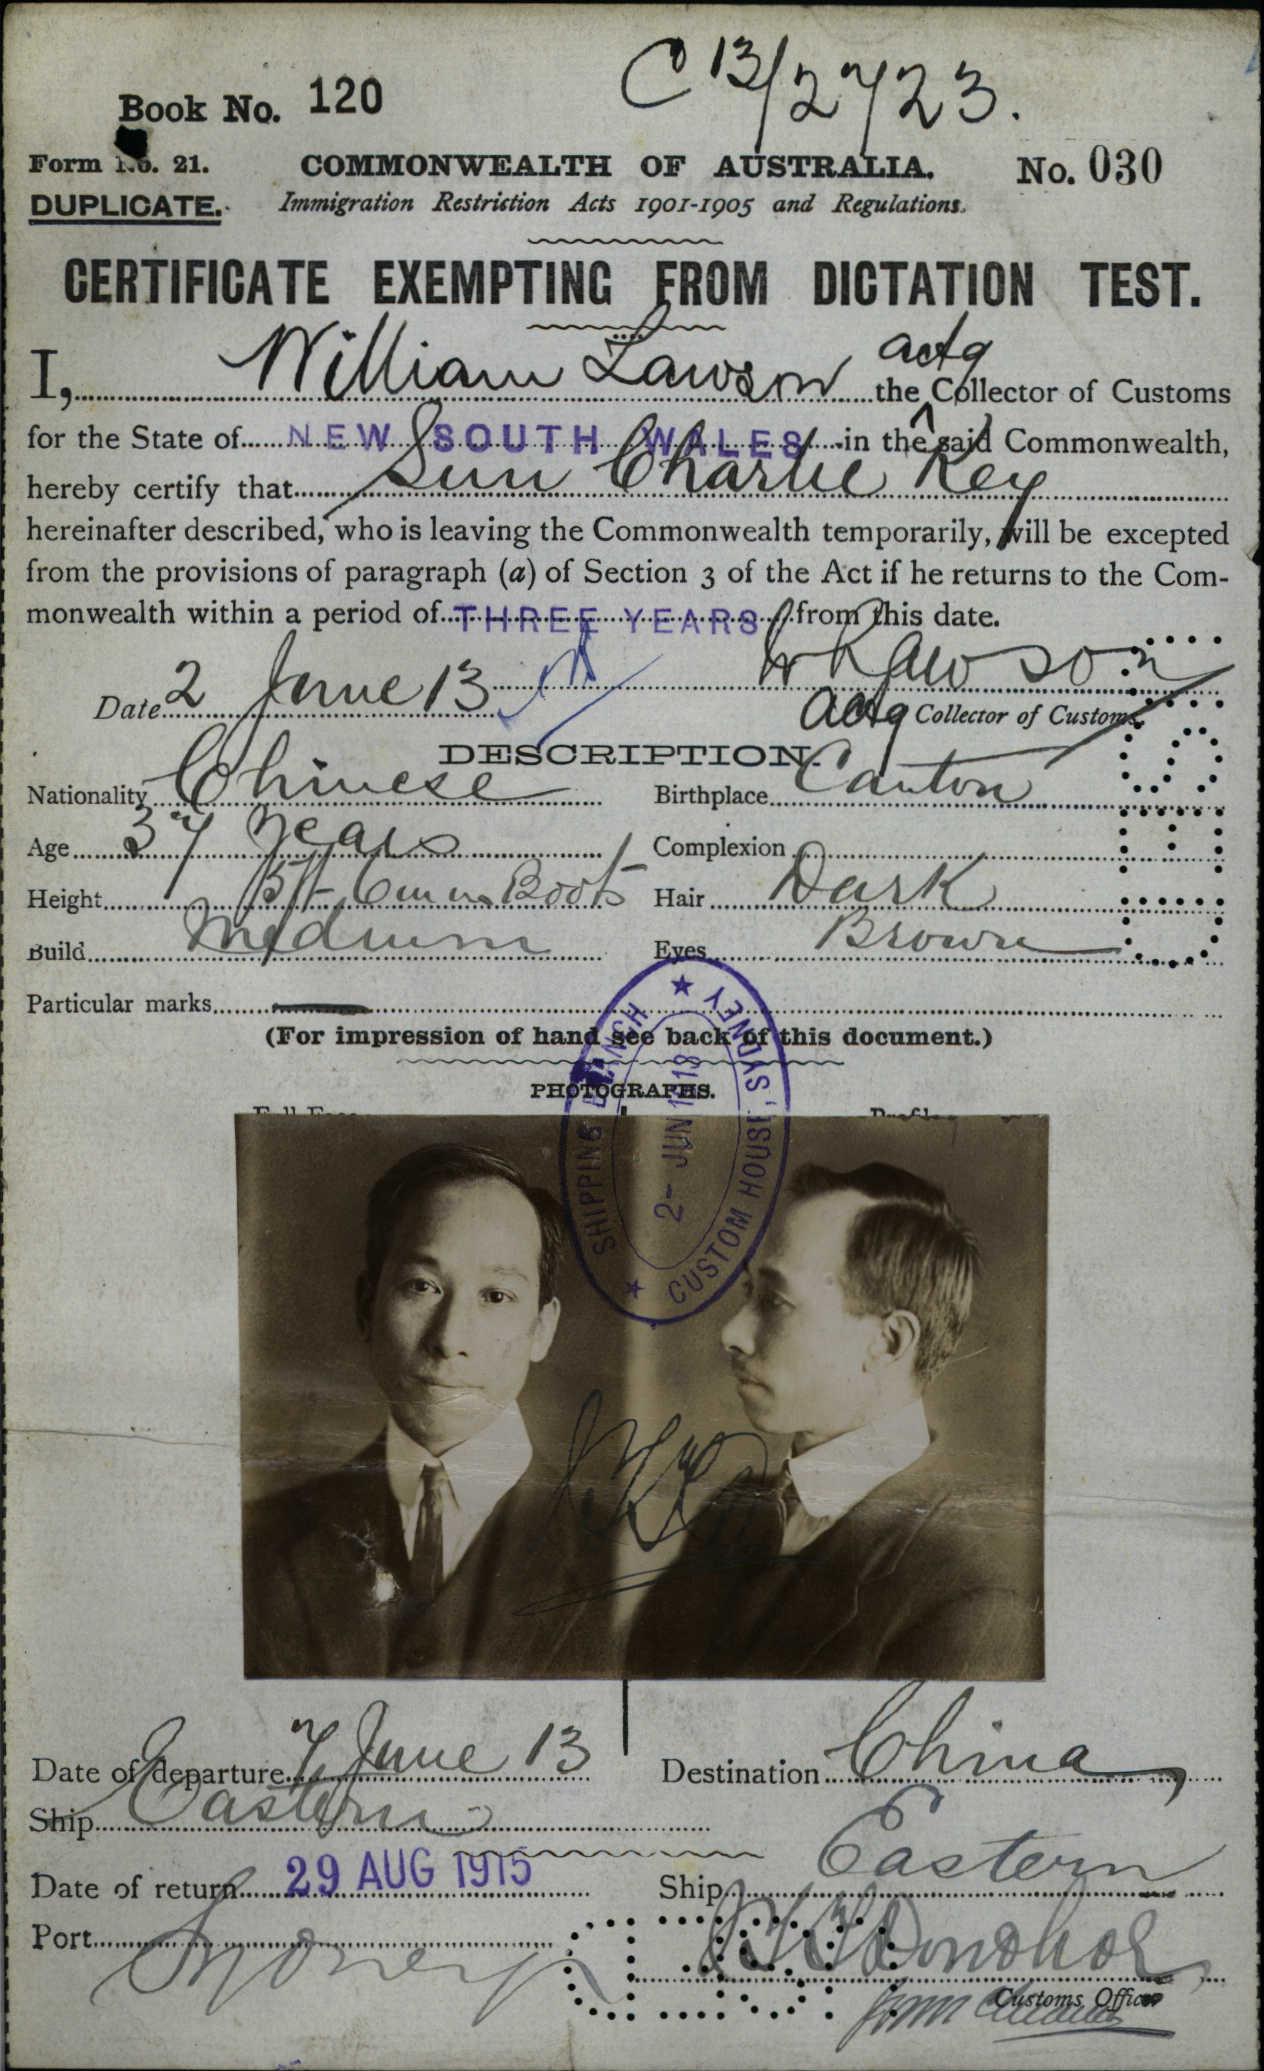 C 13/2723.
Book No. 120
Form No. 21.
COMMONWEALTH OF AUSTRALIA.
No. 030
DUPLICATE.
Immigration Restriction Acts 1901-1905 and Regulations.
CERTIFICATE EXEMPTING FROM DICTATION TEST.
I, William Lawson actg the Collector of Customs
for the State of NEW SOUTH WALES in the said Commonwealth,
hereby certify that Sun Charlie Key
hereinafter described, who is leaving the Commonwealth temporarily, will be excepted
from the provisions of paragraph (a) of Section 3 of the Act if he returns to the Com-
monwealth within a period of THREE YEARS from this date.
W Lawson
Date 2 June 13
actg Collector of Customs.
DESCRIPTION.
Nationality Chinese
Birthplace Canton
Age 37 years
Complexion
Height 5ft 6in in Boots
Hair Dark
Build Medium
Eyes Brown
Particular marks
(For impression of hand see back of this document.)
PHOTOGRAPHS.
Full Face
Profile
SHIPPING BRANCH
2- JUN 1913
CUSTOM HOUSE, SYDNEY
Date of departure 7 June 13
Destination China
Ship Eastern
Date of return 29 AUG 1915
Ship Eastern
Port Sydney
Donohoe
Customs Officer